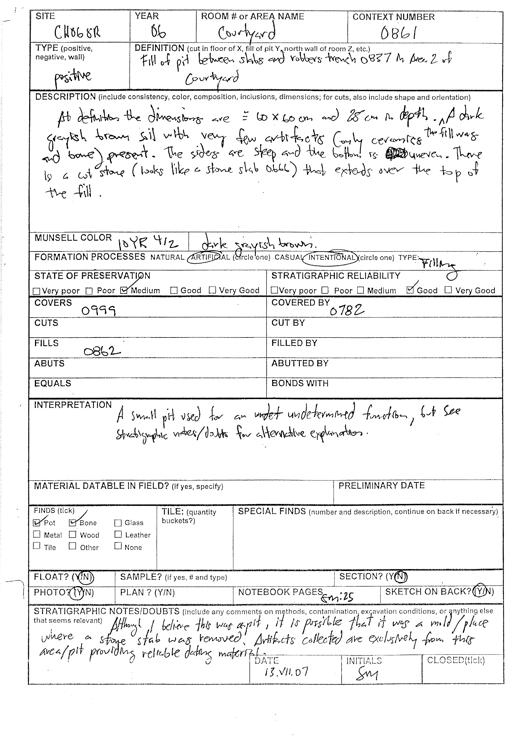 SITE YEAR ROOM # or AREA NAME CONTEXT NUMBER
CH06SR 06 Courtyard 0861
TYPE (positive, negative, wall) DEFINITION (cut in floor of X, fill of pit Y, north wall of room Z, etc.)
positive Fill of pit between slabs and robbers trench 0837 in Area 2 of
Courtyard
DESCRIPTION (include consistency, color, composition, inclusions, dimensions; for cuts, also include shape and orientation)
At definition the dimensions are = 60 x 60 cm and 25 cm in depth. A dark
grayish brown soil with very few artifacts (only ceramics the fill was
and bone) present. The sides are steep and the bottom is uneven. There
is a cut stone (looks like a stone slab 0666) that extends over the top of
the fill.
MUNSELL COLOR 10YR 4/2 dark grayish brown.
FORMATION PROCESSES NATURAL ARTIFICIAL (circle one) CASUAL INTENTIONAL (circle one) TYPE: Filling
STATE OF PRESERVATION STRATIGRAPHIC RELIABILITY
Very poor Poor Medium Good Very Good Very poor Poor Medium Good Very Good
COVERS 0999 COVERED BY 0782
CUTS CUT BY
FILLS 0862 FILLED BY
ABUTS ABUTTED BY
EQUALS BONDS WITH
INTERPRETATION A small pit used for an undetermined function, but see
stratigraphic notes/doubts for alternative explanation.
MATERIAL DATABLE IN FIELD? (if yes, specify) PRELIMINARY DATE
FINDS (tick) TILE: (quantity buckets?) SPECIAL FINDS (number and description, continue on back if necessary)
Pot Bone Glass
Metal Wood Leather
Tile Other None
FLOAT? (Y/N) SAMPLE? (if yes, # and type) SECTION? (Y/N)
PHOTO? (Y/N) PLAN ? (Y/N) NOTEBOOK PAGES Sm:25 SKETCH ON BACK? (Y/N)
STRATIGRAPHIC NOTES/DOUBTS (Include any comments on methods, contamination, excavation conditions, or anything else
that seems relevant) Although I believe this was a pit, it is possible that it was a mold/place
where a stone slab was removed. Artifacts collected are exclusively from this
area/pit providing reliable dating material.
DATE INITIALS CLOSED(tick)
13.VII.07 Sm